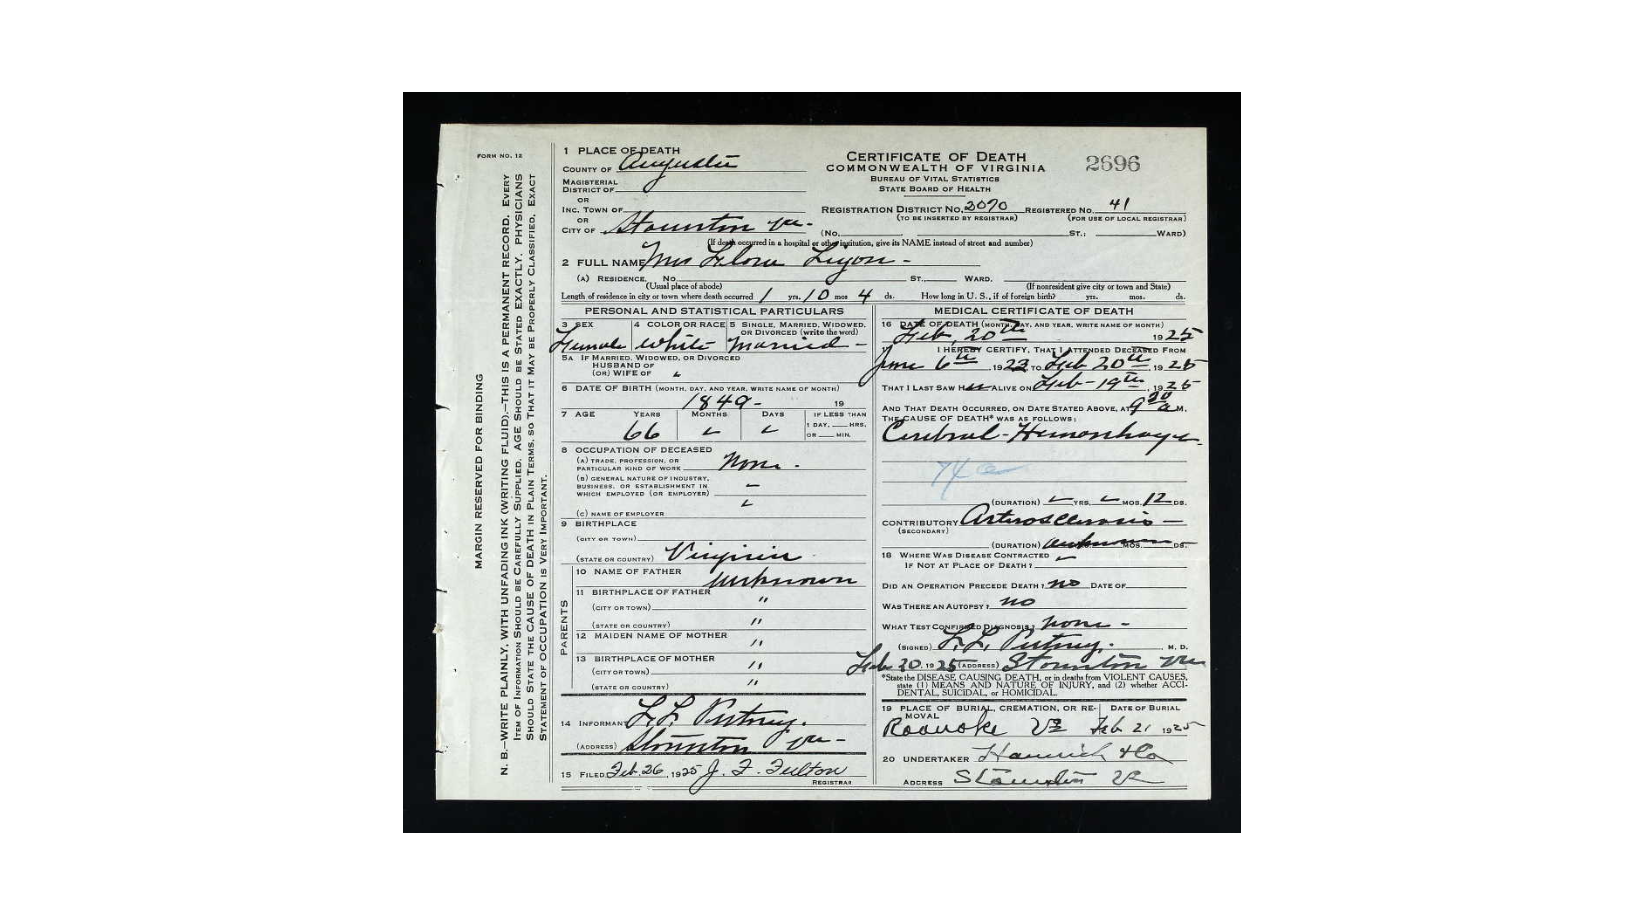 FORM NO. 12
MARGIN RESERVED FOR BINDING
N. B.—WRITE PLAINLY, WITH UNFADING INK (WRITING FLUID).—THIS IS A PERMANENT RECORD. EVERY
ITEM OF INFORMATION SHOULD BE CAREFULLY SUPPLIED. AGE SHOULD BE STATED EXACTLY. PHYSICIANS
SHOULD STATE THE CAUSE OF DEATH IN PLAIN TERMS, SO THAT IT MAY BE PROPERLY CLASSIFIED. EXACT
STATEMENT OF OCCUPATION IS VERY IMPORTANT.
1 PLACE OF DEATH
COUNTY OF Augusta
MAGISTERIAL
DISTRICT OF
OR
INC. TOWN OF
OR
CITY OF Staunton Va.
CERTIFICATE OF DEATH
COMMONWEALTH OF VIRGINIA
BUREAU OF VITAL STATISTICS
STATE BOARD OF HEALTH
2696
REGISTRATION DISTRICT NO. 2070 REGISTERED NO. 41
(TO BE INSERTED BY REGISTRAR) (FOR USE OF LOCAL REGISTRAR)
(NO. ST.; WARD)
(If death occurred in a hospital or other institution, give its NAME instead of street and number)
2 FULL NAME Mrs Ligon -
(A) RESIDENCE. NO. ST. WARD.
(Usual place of abode) (If nonresident give city or town and State)
Length of residence in city or town where death occurred 1 yrs. 10 mos 4 ds. How long in U. S., if of foreign birth? yrs. mos. ds.
PERSONAL AND STATISTICAL PARTICULARS
3 SEX 4 COLOR OR RACE 5 SINGLE, MARRIED, WIDOWED,
OR DIVORCED (write the word)
Female White Married -
5A IF MARRIED, WIDOWED, OR DIVORCED
HUSBAND OF
(OR) WIFE OF
6 DATE OF BIRTH (MONTH, DAY, AND YEAR, WRITE NAME OF MONTH)
1849 - 19
7 AGE YEARS MONTHS DAYS IF LESS THAN
1 DAY, HRS.
OR MIN.
66
8 OCCUPATION OF DECEASED
(A) TRADE, PROFESSION, OR
PARTICULAR KIND OF WORK None.
(B) GENERAL NATURE OF INDUSTRY,
BUSINESS, OR ESTABLISHMENT IN
WHICH EMPLOYED (OR EMPLOYER)
(C) NAME OF EMPLOYER
9 BIRTHPLACE
(CITY OR TOWN)
(STATE OR COUNTRY) Virginia
PARENTS
10 NAME OF FATHER Unknown
11 BIRTHPLACE OF FATHER
(CITY OR TOWN) "
(STATE OR COUNTRY) "
12 MAIDEN NAME OF MOTHER "
13 BIRTHPLACE OF MOTHER
(CITY OR TOWN) "
(STATE OR COUNTRY) "
14 INFORMANT L. L. Putney.
(ADDRESS) Staunton Va -
15 FILED Feb. 26, 1925 J. F. Fulton
REGISTRAR
MEDICAL CERTIFICATE OF DEATH
16 DATE OF DEATH (MONTH, DAY, AND YEAR, WRITE NAME OF MONTH)
Feb, 20th 1925
I HEREBY CERTIFY, THAT I ATTENDED DECEASED FROM
June 6th, 1923 TO Feb 20th, 1925
THAT I LAST SAW HER ALIVE ON Feb - 19th, 1925
AND THAT DEATH OCCURRED, ON DATE STATED ABOVE, AT 9 20 A M.
THE CAUSE OF DEATH* WAS AS FOLLOWS:
Cerebral - Hemorrhage
74 a
(DURATION) YRS. MOS. 12 DS.
CONTRIBUTORY Arterosclerosis -
(SECONDARY)
(DURATION) unknown MOS. DS.
18 WHERE WAS DISEASE CONTRACTED
IF NOT AT PLACE OF DEATH?
DID AN OPERATION PRECEDE DEATH? no DATE OF
WAS THERE AN AUTOPSY? no
WHAT TEST CONFIRMED DIAGNOSIS? None -
(SIGNED) L. L. Putney. M. D.
Feb 20. 1925 (ADDRESS) Staunton Va
*State the DISEASE CAUSING DEATH, or in deaths from VIOLENT CAUSES,
state (1) MEANS AND NATURE OF INJURY, and (2) whether ACCI-
DENTAL, SUICIDAL, or HOMICIDAL.
19 PLACE OF BURIAL, CREMATION, OR RE- DATE OF BURIAL
MOVAL
Roanoke Va Feb 21 1925
20 UNDERTAKER Hamrick & Co
ADDRESS Staunton Va